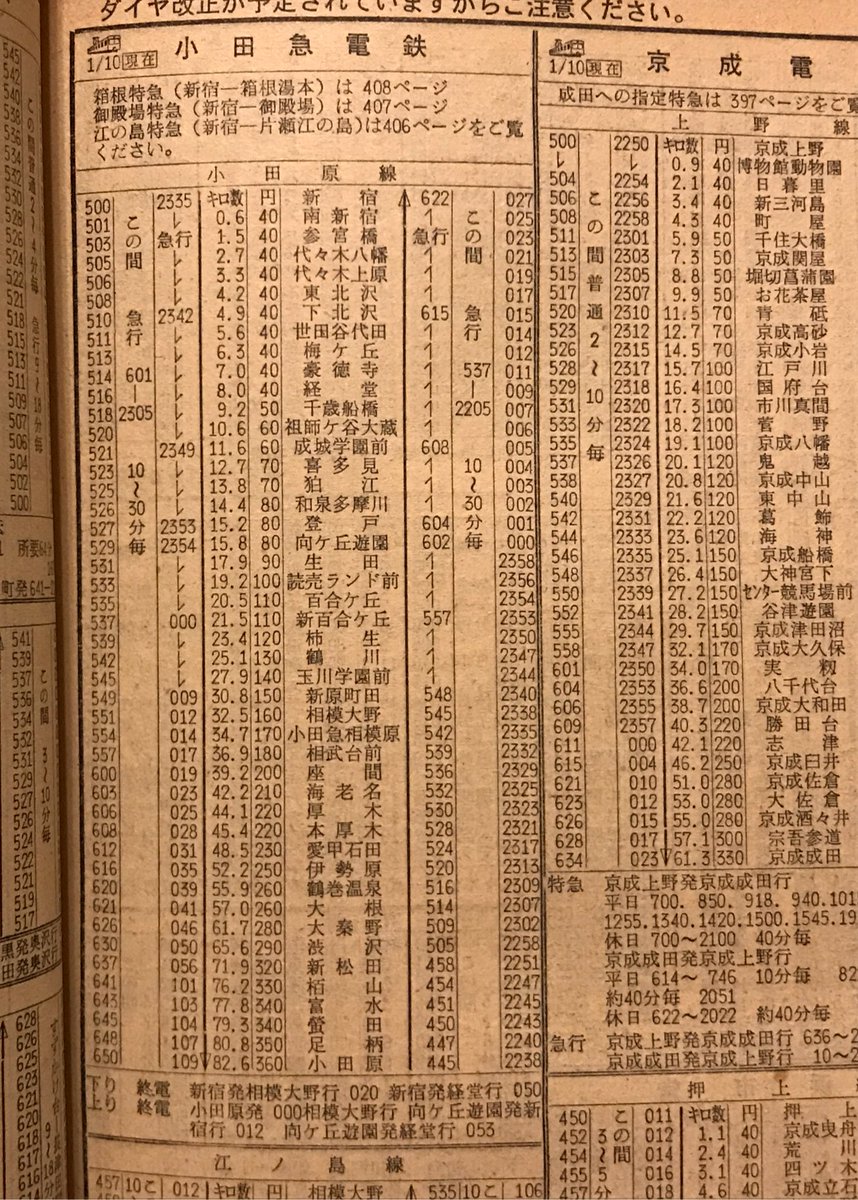 ダイヤ改正が予定されていますからご注意ください。
小田急電鉄
1/10現在
箱根特急(新宿―箱根湯本)は 408ページ
御殿場特急(新宿―御殿場)は 407ページ
江の島特急(新宿―片瀬江の島)は406ページをご覧
ください。
小田原線
500 2335 キロ数 円 新宿 622 027
501 レ 0.6 40 南新宿 025
503 急行 1.5 40 参宮橋 急行 023
505 レ 2.7 40 代々木八幡 021
506 レ 3.3 40 代々木上原 019
508 レ 4.2 40 東北沢 017
510 2342 4.9 40 下北沢 615 015
511 レ 5.6 40 世田谷代田 014
513 レ 6.3 40 梅ケ丘 012
514 レ 7.0 40 豪徳寺 011
516 レ 8.0 40 経堂 009
518 レ 9.2 50 千歳船橋 007
520 レ 10.6 60 祖師ケ谷大蔵 006
521 2349 11.6 60 成城学園前 608 005
523 レ 12.7 70 喜多見 004
525 レ 13.8 70 狛江 003
526 レ 14.4 80 和泉多摩川 002
527 2353 15.2 80 登戸 604 001
529 2354 15.8 80 向ケ丘遊園 602 000
531 レ 17.9 90 生田 2358
533 レ 19.2 100 読売ランド前 2356
535 レ 20.5 110 百合ケ丘 2354
537 000 21.5 110 新百合ケ丘 557 2353
539 レ 23.4 120 柿生 2350
542 レ 25.1 130 鶴川 2347
545 レ 27.9 140 玉川学園前 2344
549 009 30.8 150 新原町田 548 2340
551 012 32.5 160 相模大野 545 2338
554 014 34.7 170 小田急相模原 542 2335
557 017 36.9 180 相武台前 539 2332
600 019 39.2 200 座間 536 2329
602 023 42.2 210 海老名 532 2325
606 025 44.1 220 厚木 530 2323
608 028 45.4 220 本厚木 528 2321
612 031 48.5 230 愛甲石田 524 2317
616 035 52.2 250 伊勢原 520 2313
620 039 55.9 260 鶴巻温泉 516 2309
621 041 57.0 260 大根 514 2307
626 046 61.7 280 大秦野 509 2302
630 050 65.6 290 渋沢 505 2258
637 056 71.9 320 新松田 458 2251
641 101 76.2 330 栢山 454 2247
643 103 77.8 340 富水 451 2245
645 104 79.3 340 螢田 450 2243
648 107 80.8 350 足柄 447 2240
650 109 82.6 360 小田原 445 2238
この間 急行 601―2305 10〜30分毎
この間 急行 537―2205 10〜30分毎
下り 終電 新宿発相模大野行 020 新宿発経堂行 050
上り 終電 小田原発 000相模大野行 向ケ丘遊園発新
宿行 012 向ケ丘遊園発経堂行 053
江ノ島線
457 10こ 012 キロ数 円 相模大野 535 10こ 106
京成電
1/10現在
成田への指定特急は 397ページをご
上野線
500 2250 キロ数 円 京成上野
レ レ 0.9 40 博物館動物園
504 2254 2.1 40 日暮里
506 2256 3.4 40 新三河島
508 2258 4.3 40 町屋
511 2301 5.9 50 千住大橋
513 2303 7.3 50 京成関屋
515 2305 8.8 50 堀切菖蒲園
517 2307 9.9 50 お花茶屋
520 2310 11.5 70 青砥
523 2312 12.7 70 京成高砂
526 2315 14.5 70 京成小岩
528 2317 15.7 100 江戸川
529 2318 16.4 100 国府台
531 2320 17.3 100 市川真間
533 2322 18.2 100 菅野
535 2324 19.1 100 京成八幡
537 2326 20.1 120 鬼越
538 2327 20.8 120 京成中山
540 2329 21.6 120 東中山
542 2331 22.2 120 葛飾
544 2333 23.6 120 海神
546 2335 25.1 150 京成船橋
548 2337 26.4 150 大神宮下
550 2339 27.2 150 センター競馬場前
552 2341 28.2 150 谷津遊園
555 2344 29.7 150 京成津田沼
558 2347 32.1 170 京成大久保
601 2350 34.0 170 実籾
604 2353 36.6 200 八千代台
606 2355 38.7 200 京成大和田
609 2357 40.3 220 勝田台
611 000 42.1 220 志津
615 004 46.2 250 京成臼井
621 010 51.0 280 京成佐倉
623 012 53.0 280 大佐倉
626 015 55.0 280 京成酒々井
628 017 57.1 300 宗吾参道
634 023 61.3 330 京成成田
この間普通2〜10分毎
特急 京成上野発京成成田行
平日 700. 850. 918. 940.101
1255.1340.1420.1500.1545.19
休日 700〜2100 40分毎
京成成田発京成上野行
平日 614〜 746 10分毎 82
約40分毎 2051
休日 622〜2022 約40分毎
急行 京成上野発京成成田行 636〜2
京成成田発京成上野行 10〜2
押上
450 この間 011 キロ数 円 押上
452 012 1.1 40 京成曳舟
454 014 2.4 40 荒川
455 016 3.1 40 四ツ木
457 018 4.6 40 京成立石